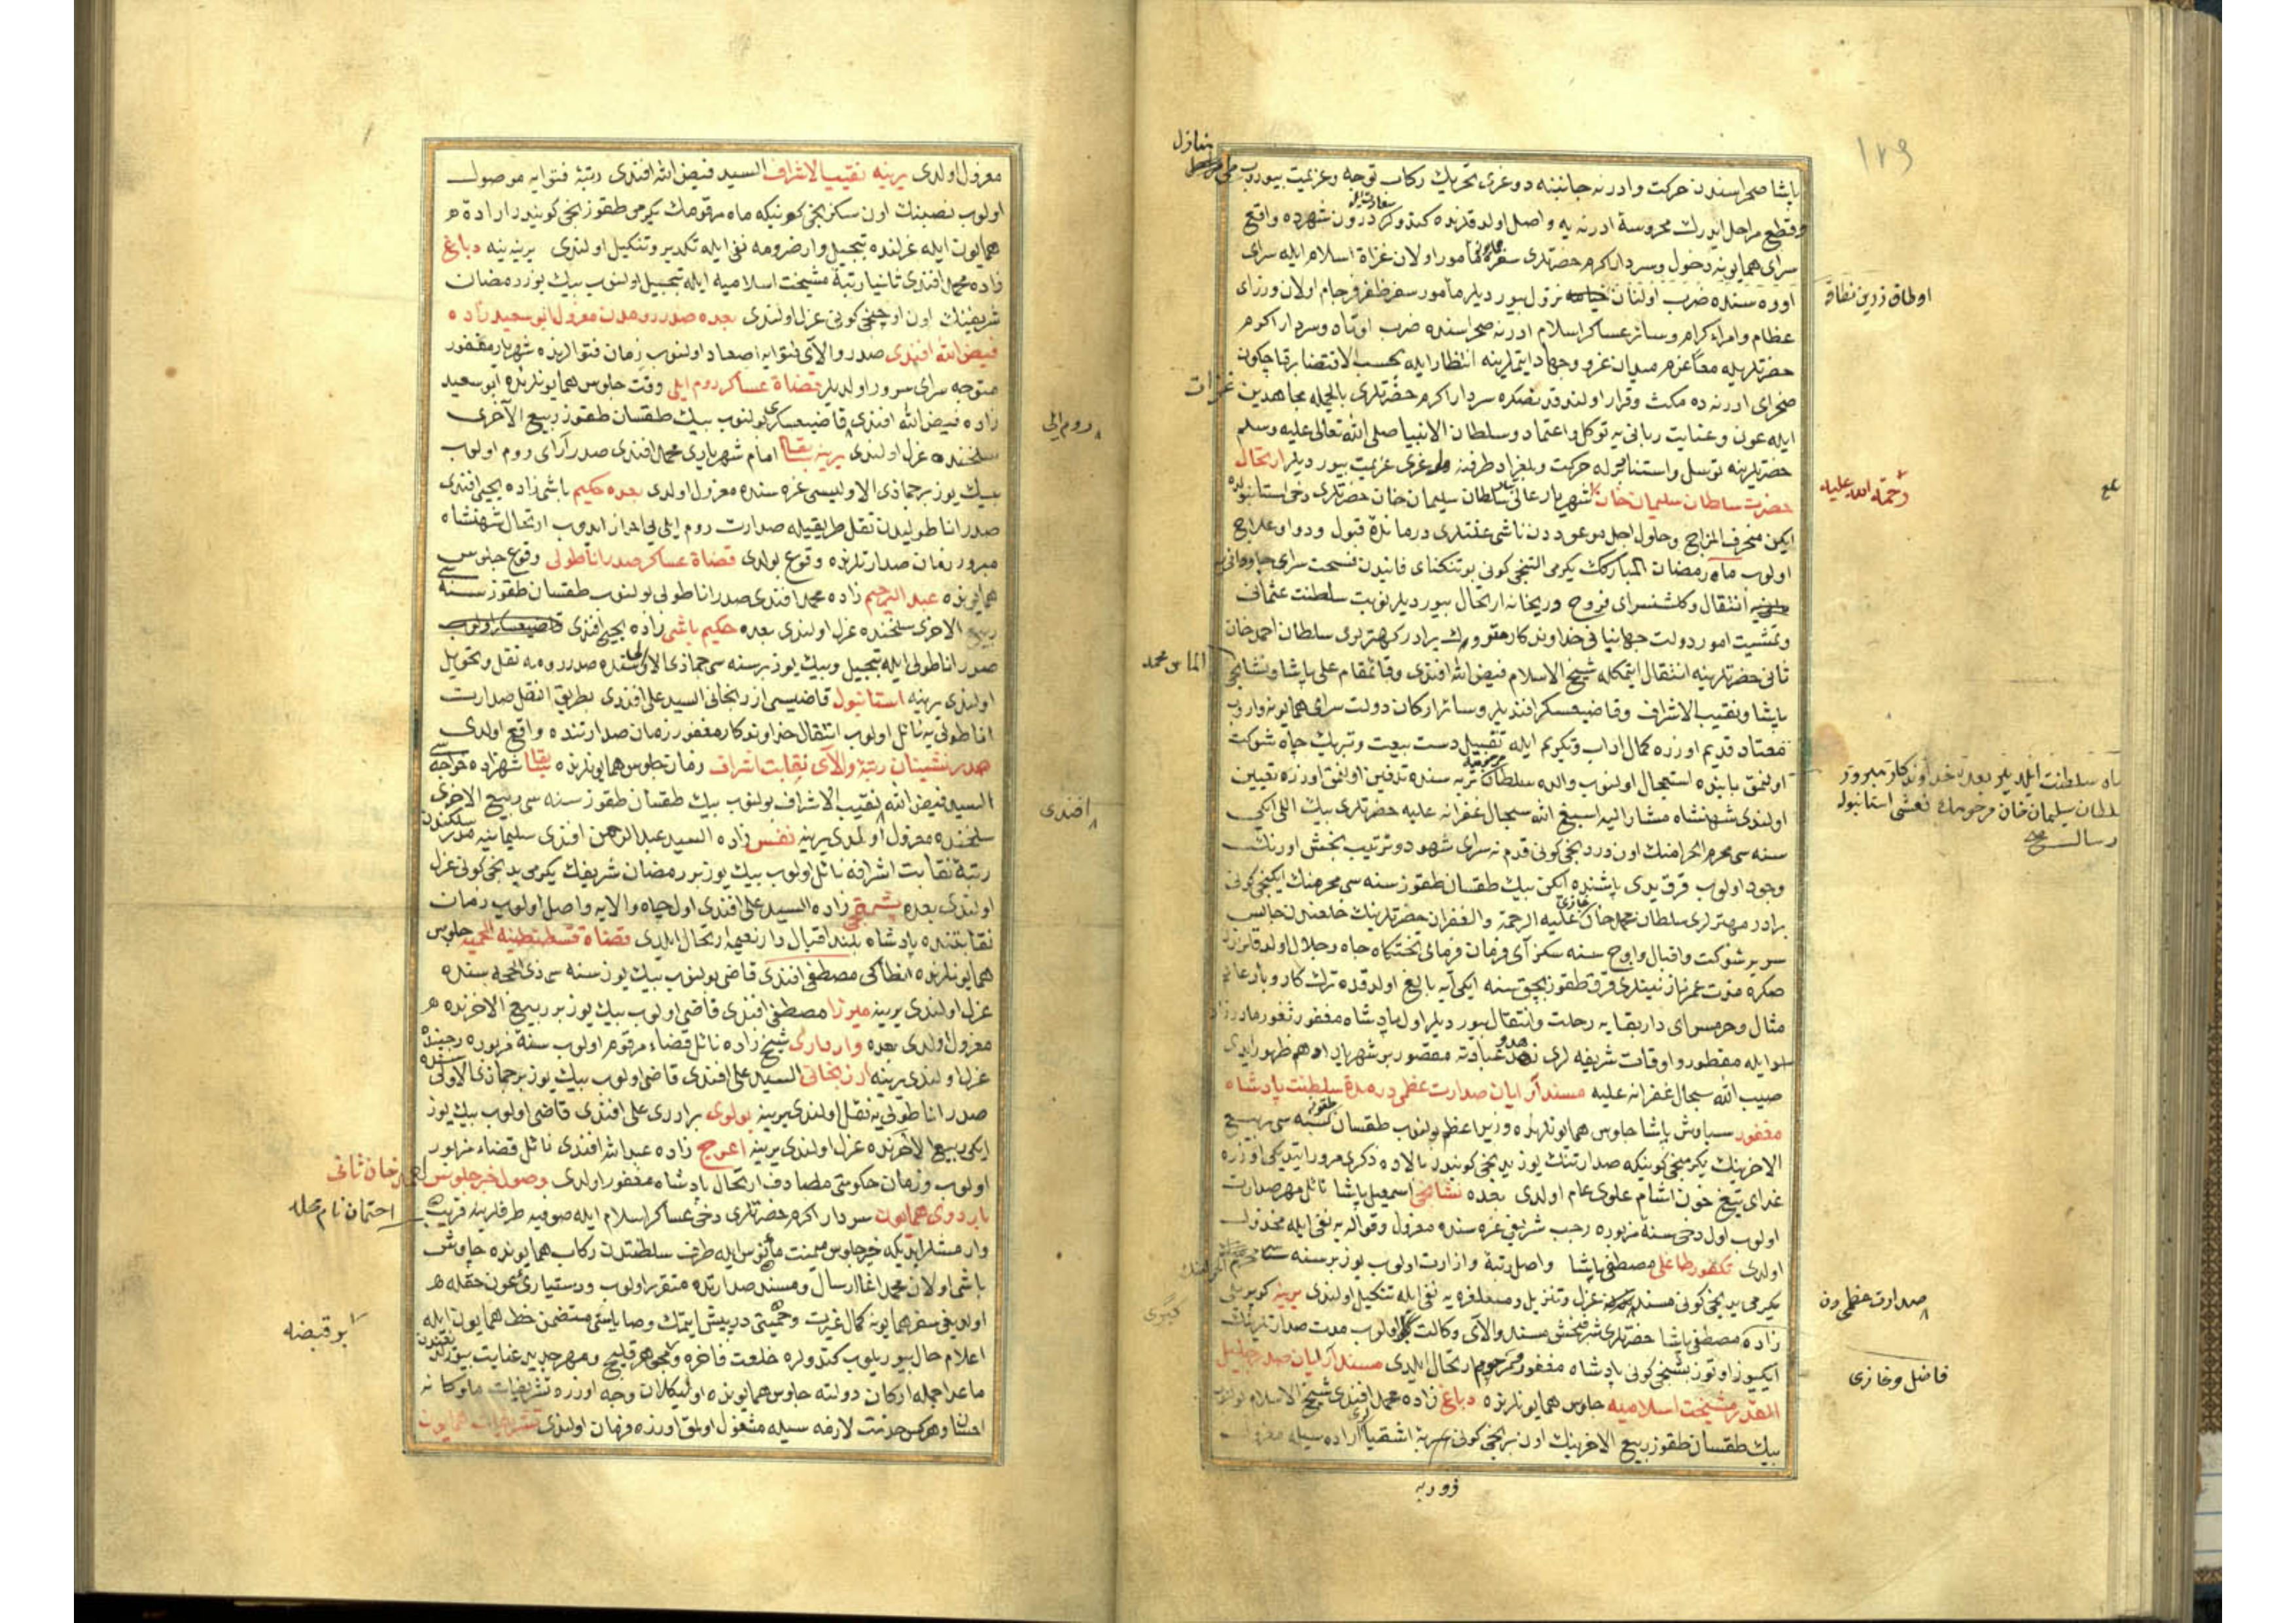 ١٢٩
پاشا صحراسندن حركت وادرنه جانبنه دوغرى تحريك ركاب توجه وعزيمت بيوروب
وقطع مراحل ايدرك محروسهٔ ادرنه يه واصل اولدقلرنده كندولر درون شهرده واقع
سراى همايونه دخول وسردار اكرم حضرتلرى سفره مأمور اولان غزاة اسلام ايله سراى
اوره سنده ضرب اولنان نزول بيورديلر مأمور سفر ظفر فرجام اولان وزراى
عظام وامراء كرام وسائر عساكر اسلام ادرنه صحراسنده ضرب اوتاه وسردار اكرم
حضرتلريله معاً عزم ميدان غزو وجهاد ايتملرينه انتظار ايله بحسب الاقتضا برقاچ كون
صحراى ادرنه ده مكث وقرار اولندقدنصكره سردار اكرم حضرتلرى بالجمله مجاهدين غزات
ايله عون وعنايت ربانى يه توكل واعتماد وسلطان الانبيا صلى الله تعالى عليه وسلم
حضرتلرينه توسل واستناد برله حركت وبلغراد طرفنه طوغرى عزيمت بيورديلر ارتحال
حضرت سلطان سليمان خان شهريار عالى سلطان سليمان خان حضرتلرى دخى استانبولده
ايكن منحرف المزاج وحلول اجل موعوددن ناشى علتلرى درماندهٔ قبول ودوا وعلاج
اولوب ماه رمضان المباركك يكرمى التنجى كونى بو تنكناى فانيدن فسحت سراى جاودانى يه
انتقال وكلشنسراى فروح وريحانه ارتحال بيورديلر نوبت سلطنت عثمانى
وتمشيت امور دولت جهانبانى خداوندكار مبرورك برادر كهترلرى سلطان احمد خان
ثانى حضرتلرينه انتقال ايتمكله شيخ الاسلام فيض الله افندى وقائمقام على پاشا ونشانجى
پاشا ونقيب الاشراف وقاضيعسكر افنديلر وسائر اركان دولت سراى همايونه واروب
معتاد قديم اوزره كمال اداب وتكريم ايله تقبيل دست بيعت وتبريك جاه شوكت
اولنمق بابنده استعجال اولنوب والده سلطان تربه سنده تدفين اولنمق اوزره تعيين
اولندى شهنشاه مشار اليه اسبغ الله سجال غفرانه عليه حضرتلرى بيك اللى ايكى
سنه سى محرم الحرامنك اون دردنجى كونى قدم نه سراى شهود وترتيب بخش اورنك
وجود اولوب قرق يدى ياشنده ايكن بيك طقسان طقوز سنه سى محرمنك ايكنجى كونى
برادر مهترلرى سلطان محمد خان عليه الرحمة والغفران حضرتلرينك خلعندن جالس
سرير شوكت واقبال واوچ سنه سكز آى فرمان فرماى تختكاه جاه وجلال اولدقلرندن
صكره مدت عمر ناز نينلرى قرق طقوز بچق سنه ايكى آيه بالغ اولدقده ترك كار وبار عالم
مثال وحرمسراى دار بقايه رحلت وانتقال بيورديلر اول پادشاه مغفور ثغور مادرزاد
ايله مفطور واوقات شريفه لرى عبادته مقصور بر شهريار ادهم ظهور ايدى
صيب الله سجال غفرانه عليه مسند آرايان صدارت عظمى در مدة سلطنت پادشاه
مغفور سياوش پاشا جلوس همايونلرنده وزير اعظم بولنوب طقسان طقوز سنه سى ربيع
الاخرينك يكرمنجى كوننده صدارتنك يوز يدنجى كونيدر بالاده ذكرى مرور ايتديكى اوزره
غداى تيغ خون اشام علوى عام اولدى بعده نشانجى اسمعيل پاشا نائل مهر صدارت
اولوب اول دخى سنهٔ مزبوره رجب شريفى غره سنده معزول وقواله يه نفى ايله مخذول
اولدى تكفور طاغلى مصطفى پاشا واصل رتبهٔ وزارت اولوب يوز بر سنه سى محرم الحرامنك
يكرمى يدنجى كونى عزل وتنزيل ومعلغره يه نفى ايله تنكيل اولندى يرينه كوپريلى
زاده مصطفى پاشا حضرتلرى شرفبخش مسند والاى وكالت كبرى اولوب مدت صدارتلرينك
ايكيوز اوتوز بشنجى كونى پادشاه مغفور ومرحوم ارتحال ايلدى مسند آرايان صدر جليل
القدر مشيخت اسلاميه جلوس همايونلرنده دباغ زاده محمد افندى شيخ الاسلام بولنوب
بيك طقسان طقوز ربيع الاخرينك اون برنجى كونى اشقيا اراده سيله معزول
اوطاق زرين نطاقه
رحمة الله عليه
الماس محمد
صدارت عظمى دن
فاضل وغازى
كبرى
معزول اولدى يرينه نقيب الاشراف السيد فيض الله افندى رتبهٔ فتوايه موصول
اولوب نصبنك اون سكزنجى كونيكه ماه مرقومك يكرمى طقوزنجى كونيدر ارادهٔ
همايون ايله عزلنده تبجيل وارضرومه نفى ايله تكدير وتنكيل اولندى يرينه ينه دباغ
زاده محمد افندى ثانيا رتبهٔ مشيخت اسلاميه ايله تبجيل اولنوب بيك يوز رمضان
شريفينك اون اوچنجى كونى عزل اولندى بعده صدر رومدن معزول ابو سعيد زاده
فيض الله افندى صدر والاى فتوايه اصعاد اولنوب زمان فتوالرنده شهريار مغفور
متوجه سراى سرور اولديلر قضاة عساكر روم ايلى وقت جلوس همايونلرنده ابو سعيد
زاده فيض الله افندى قاضيعسكرى بولنوب بيك طقسان طقوز ربيع الآخرى
سلخنده عزل اولندى يرينه بقا امام شهريارى محمد افندى صدر آراى روم اولوب
بيك يوز بر جماذى الاوليسى غره سنده معزول اولدى بعده حكيم باشى زاده يحيى افندى
صدر اناطوليدن نقل طريقيله صدارت روم ايلى يى احراز ايدوب ارتحال شهنشاه
مبرور زمان صدارتلرنده وقوع بولدى قضاة عساكر صدر اناطولى وقوع جلوس
همايونده عبد الرحيم زاده محمد افندى صدر اناطولى بولنوب طقسان طقوز سنه سى
ربيع الاخرى سلخنده عزل اولندى بعده حكيم باشى زاده يحيى افندى
صدر اناطولى ايله تبجيل وبيك يوز بر سنه سى جماذى الاولى سنده صدر رومه نقل وتحويل
اولندى يرينه استانبول قاضيسى ازرنجانى السيد على افندى بطريق النقل صدارت
اناطولى يه نائل اولوب انتقال خداوندكار مغفور زمان صدارتنده واقع اولدى
صدرنشينان رتبهٔ والاى نقابت اشراف زمان جلوس همايونلرنده بقا شهزاده خواجه سى
السيد فيض الله نقيب الاشراف بولنوب بيك طقسان طقوز سنه سى ربيع الاخرى
سلخنده معزول اولندى يرينه نفس زاده السيد عبد الرحمن افندى سليمانيه مدرسه سندن
رتبهٔ نقابت اشرافه نائل اولوب بيك يوز بر رمضان شريفك يكرمى يدنجى كونى عزل
اولندى بعده پشمقجى زاده السيد على افندى اول جاه والايه واصل اولوب زمان
نقابتنده پادشاه بلند اقبال دار نعيمه ارتحال ايلدى قضاة قسطنطينيه المحميه جلوس
همايونلرنده انطاكى مصطفى افندى قاضى بولنوب بيك يوز سنه سى ذى الحجه سنده
عزل اولندى يرينه ميرزا مصطفى افندى قاضى اولوب بيك يوز بر ربيع الاخرنده
معزول اولدى بعده واردارى شيخ زاده نائل قضاء مرقوم اولوب سنهٔ مزبوره رجبنده
عزل اولندى يرينه ازرنجانى السيد على افندى قاضى اولوب بيك يوز بر جماذى الاولى سنده
صدر اناطولى يه نقل اولندى يرينه بولوى برادرى على افندى قاضى اولوب بيك يوز
ايكى ربيع الاخرنده عزل اولندى يرينه اعوج زاده عبد الله افندى نائل قضاء مزبور
اولوب وزمان حكومتى مصادف ارتحال پادشاه مغفور اولدى وصول خبر جلوس احمد خان ثانى
باردوى همايون سردار اكرم حضرتلرى دخى عساكر اسلام ايله صوفيه طرفلرينه قريب
وارمشلر ايديكه خبر جلوس ميمنت مأنوس ايله طرف سلطنتدن ركاب همايونده چاوش
باشى اولان محمد اغا ارسال ومسند صدارتده متقرر اولوب ودستيارئ عون حقله
اولديغى سفر همايونه كمال غيرت وحميتى درپيش ايتمك وصاياسنى متضمن خط همايون ايله
اعلام حال بيوريلوب كندولره خلعت فاخره ومجوهر قليچ ومهر جديد عنايت بيورلدى
ماعدا جمله اركان دولته جلوس همايونده اولنه كلان وجه اوزره تشريفات ملوكانه
احسان وهركس خدمت لازمه سيله مشغول اولمق اوزره فرمان اولندى تشريفات همايون
روم ايلى
افندى
احتمان نام محله
ابو قبضه